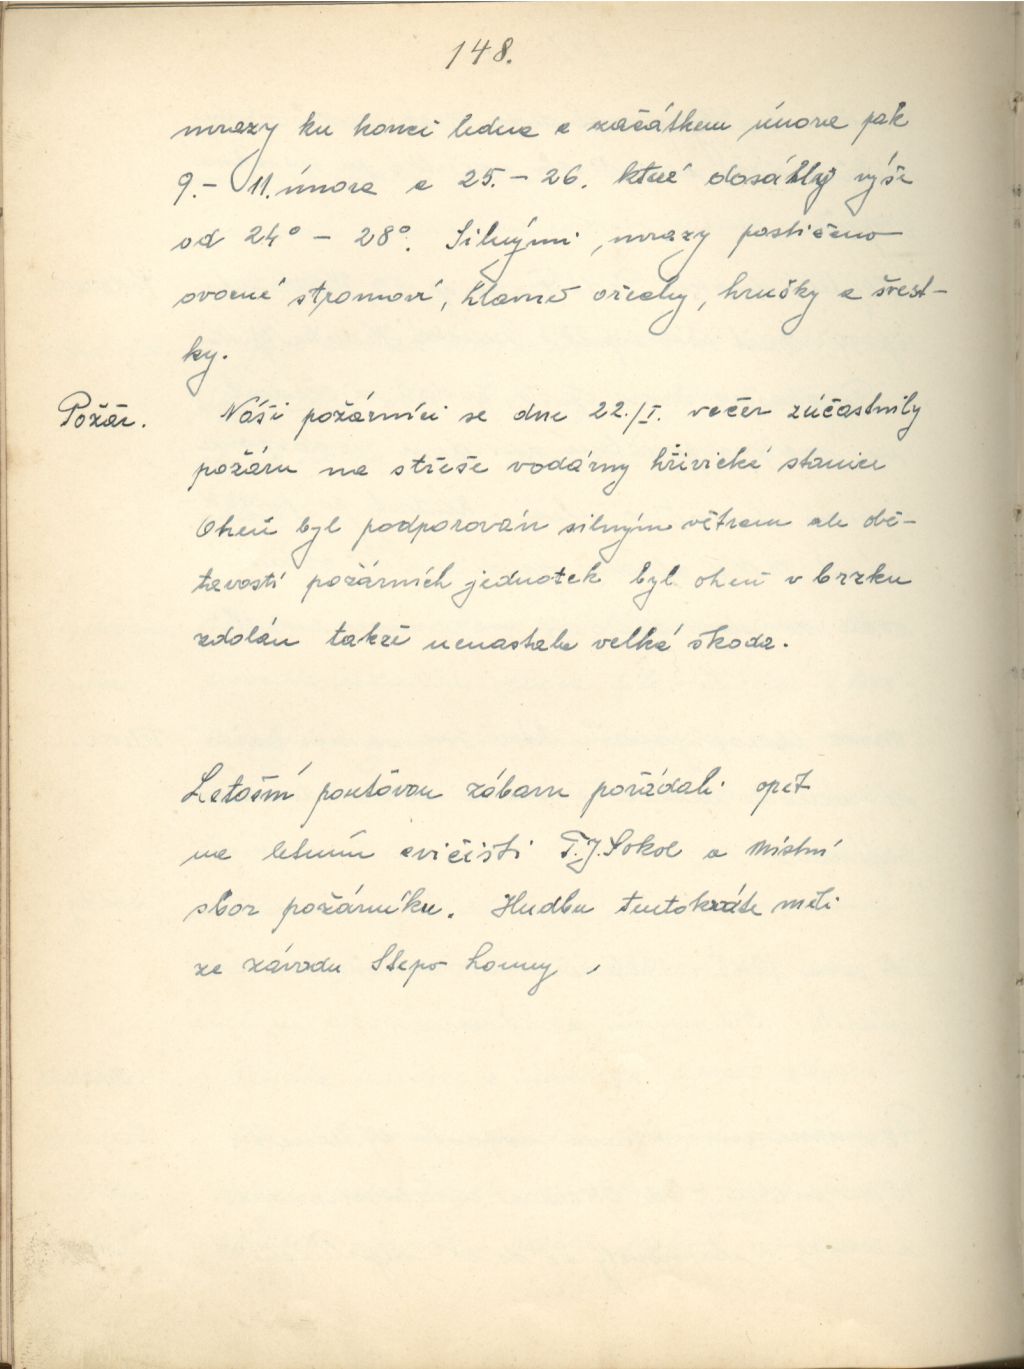 148.
mrazy ku konci ledna a začátkem února jak
9.- 11. února a 25. - 26. které dosáhly výše
od 24° - 28°. Silnými mrazy postiženo
ovocné stromoví, hlavně ořechy, hrušky a švest-
ky.
Požár. Náši požárníci se dne 22./I. večer zúčastnily
požáru na střeše vodárny hřivické stanice
Oheň byl podporován silným větrem ale obě-
tavostí požárních jednotek byl oheň v brzku
zdolán takže nenastala velká škoda.
Letošní pouťovou zábavu pořádali opět
na letním cvičišti T.J.Sokol a Místní
sbor požárníku. Hudbu tentokráte měli
ze závodu Stepo Louny,